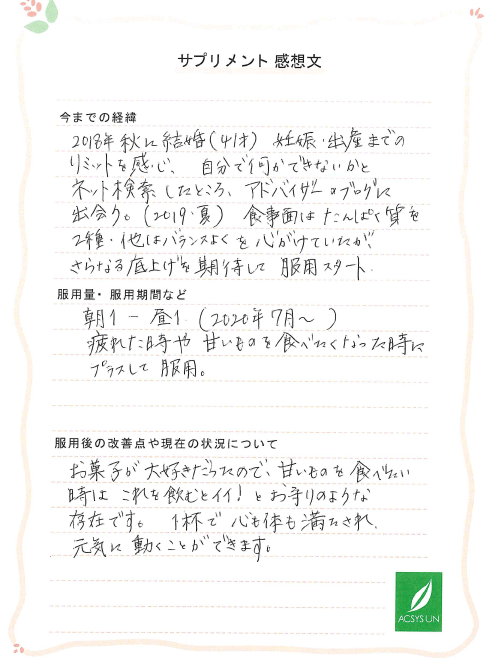 サプリメント 感想文
今までの経緯
2018年秋に結婚(41才) 妊娠・出産までの
リミットを感じ、自分で何かできないかと
ネット検索したところ、アドバイザーのブログに
出会う。(2019・夏) 食事面はたんぱく質を
2種・他はバランスよくを心がけていたが、
さらなる底上げを期待して 服用スタート.
服用量・服用期間など
朝1 ー 昼1 (2020年7月〜 )
疲れた時や 甘いものを食べたくなった時に
プラスして 服用。
服用後の改善点や現在の状況について
お菓子が大好きだったので、甘いものを食べたい
時は これを飲むとイイ!とお守りのような
存在です。 1杯で 心も体も満たされ、
元気に動くことができます。
ACSYSUN